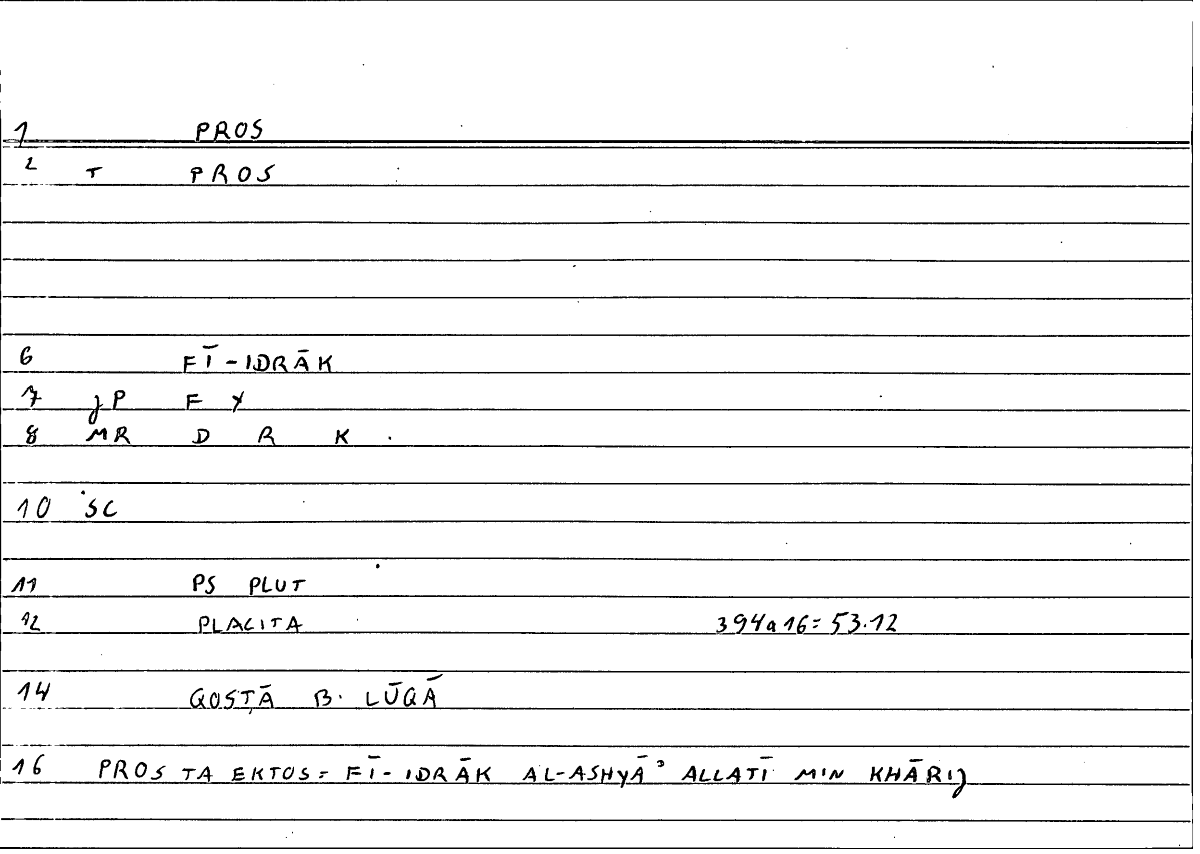 1 PROS
2 T PROS
6 FĪ-IDRĀK
7 JP F Y
8 MR D R K
10 SC
11 PS PLUT
12 PLACITA 394a16=53.12
14 QOSṬĀ B. LŪQĀ
16 PROS TA EKTOS= FĪ-IDRĀK AL-ASHYĀʾ ALLATĪ MIN KHĀRIJ